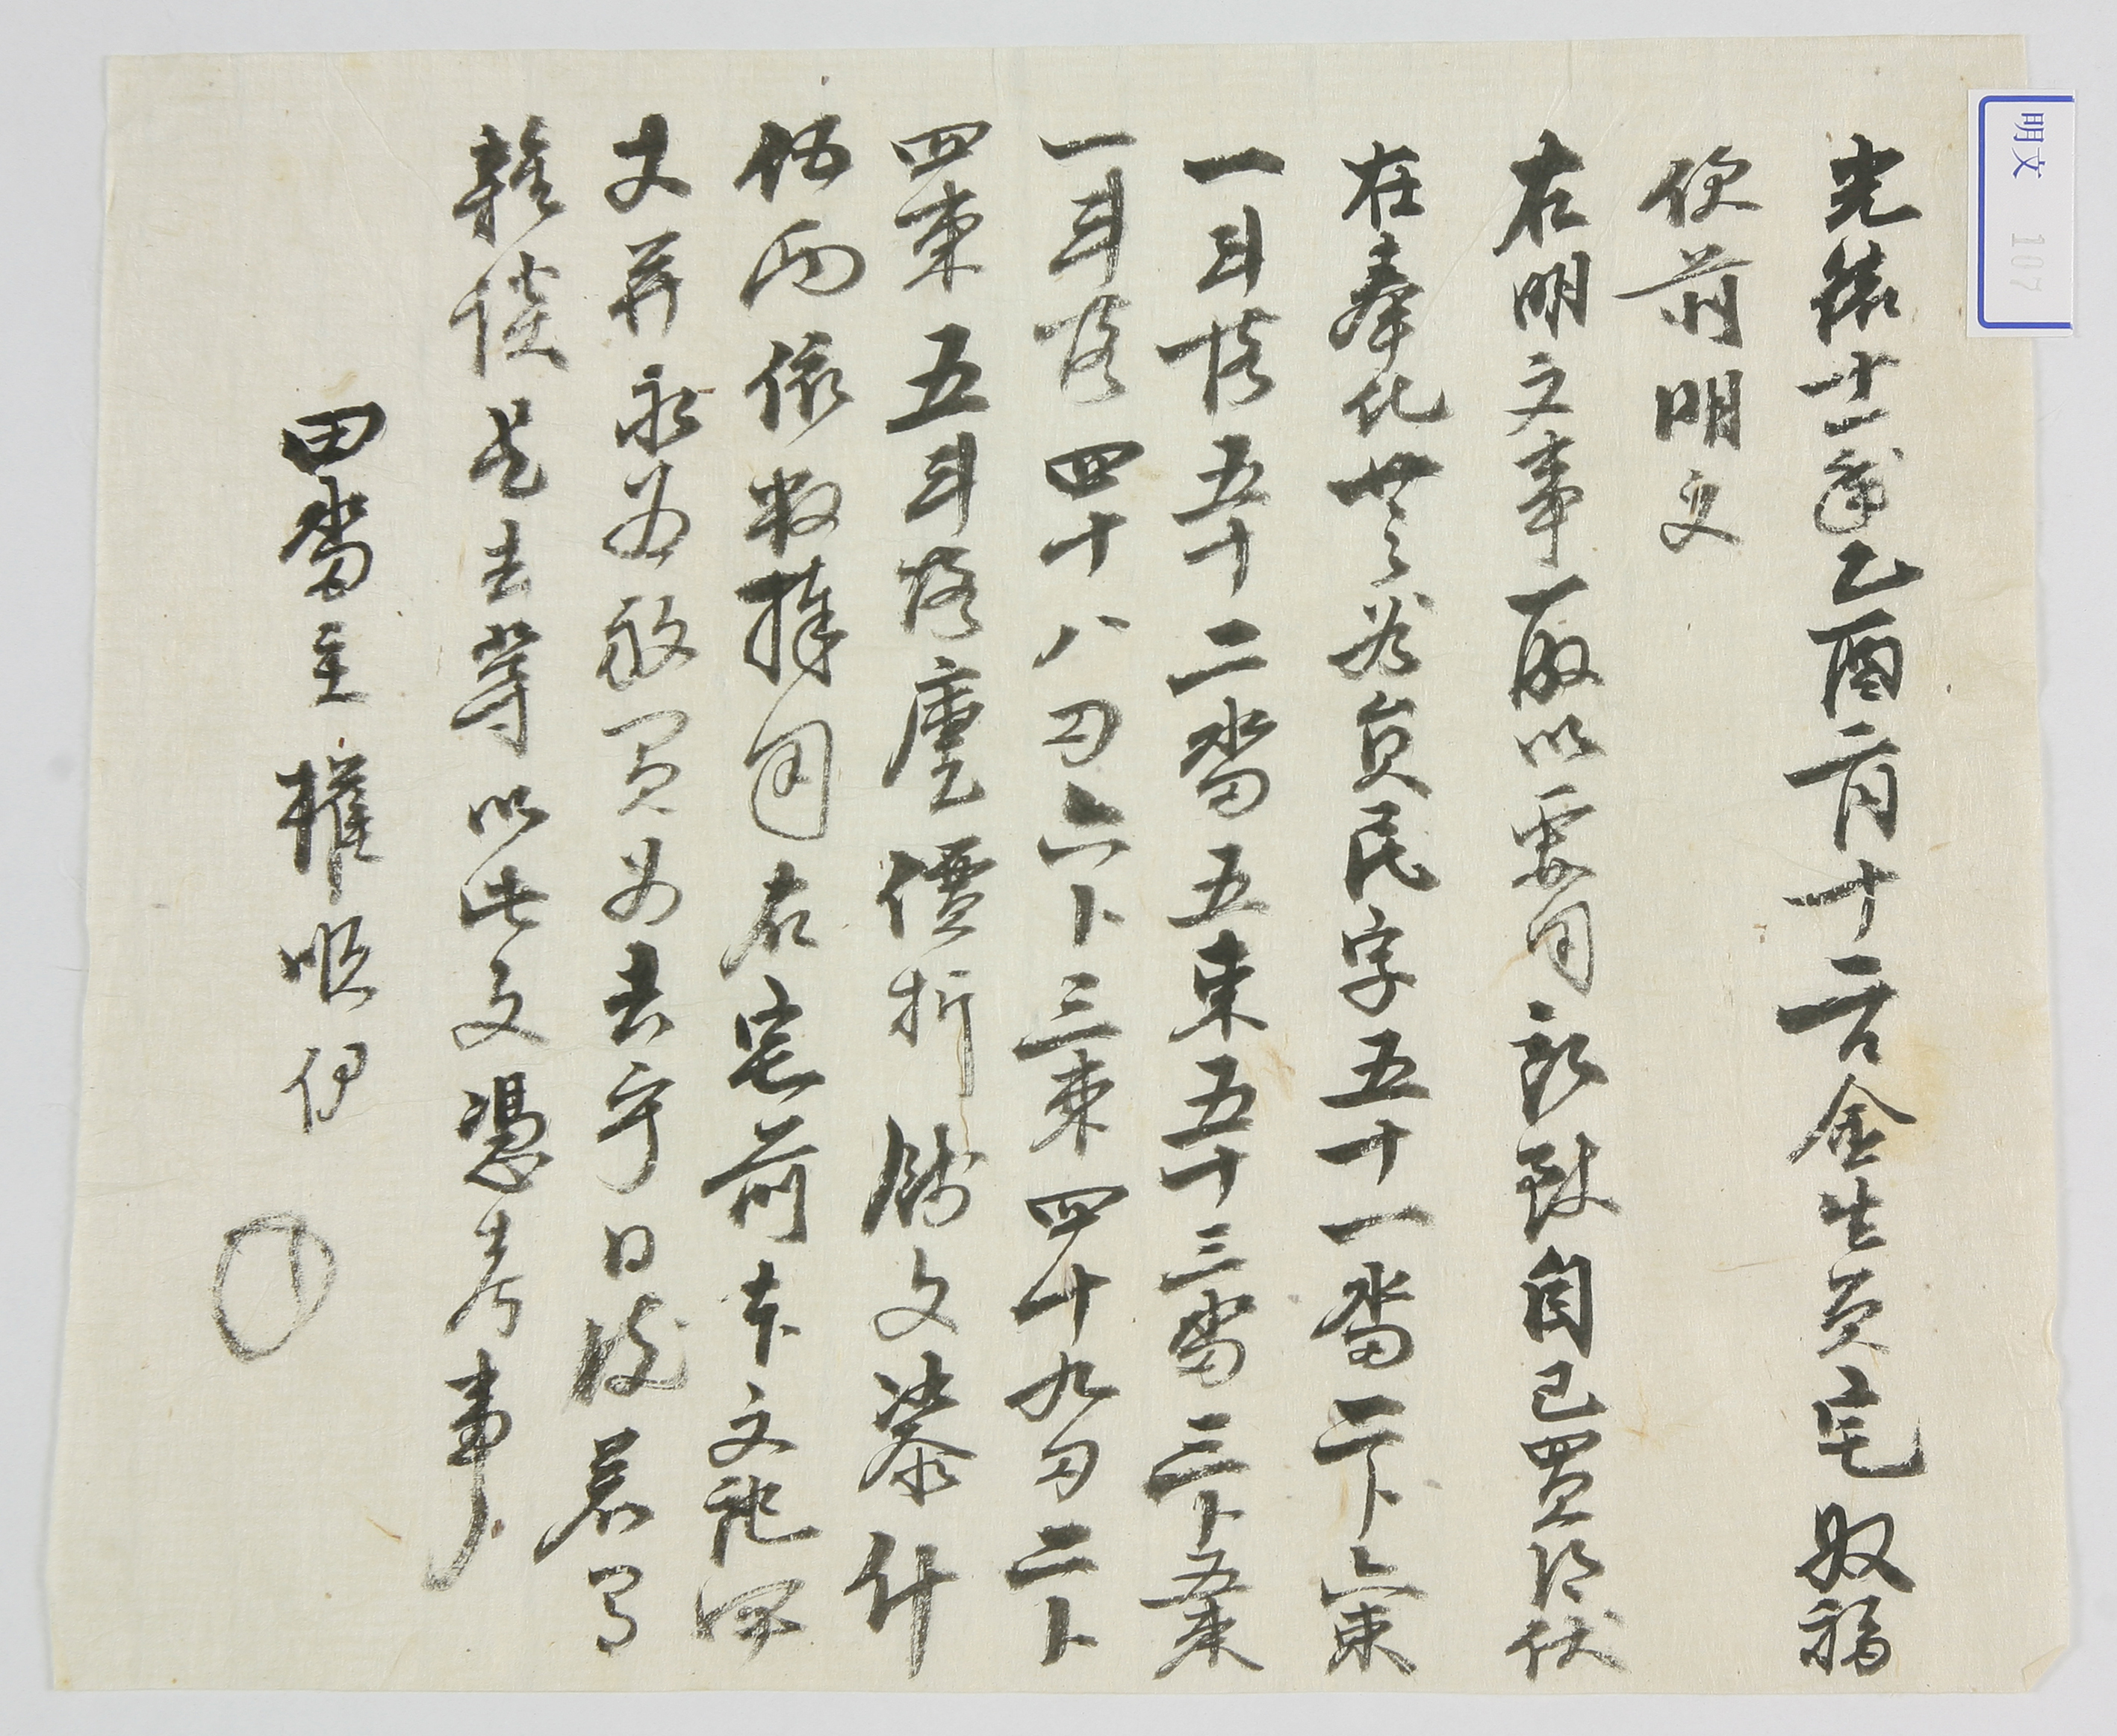 光緖十一年乙酉二月十一日金生員宅奴福
伊前明文
右明文事段以要用所致自己買得伏
在奉化 員民字五十一畓二卜六束
一斗落五十二畓五束五十三畓三卜五束
一斗落四十八刀六卜三束四十九刀二卜
四束五斗落廤價折錢文柒什
伍兩依數捧用右宅前本文記幷
以永永放買爲去乎日後若有
雜談是去等以此文憑考事
田畓主權順伊
明文 107